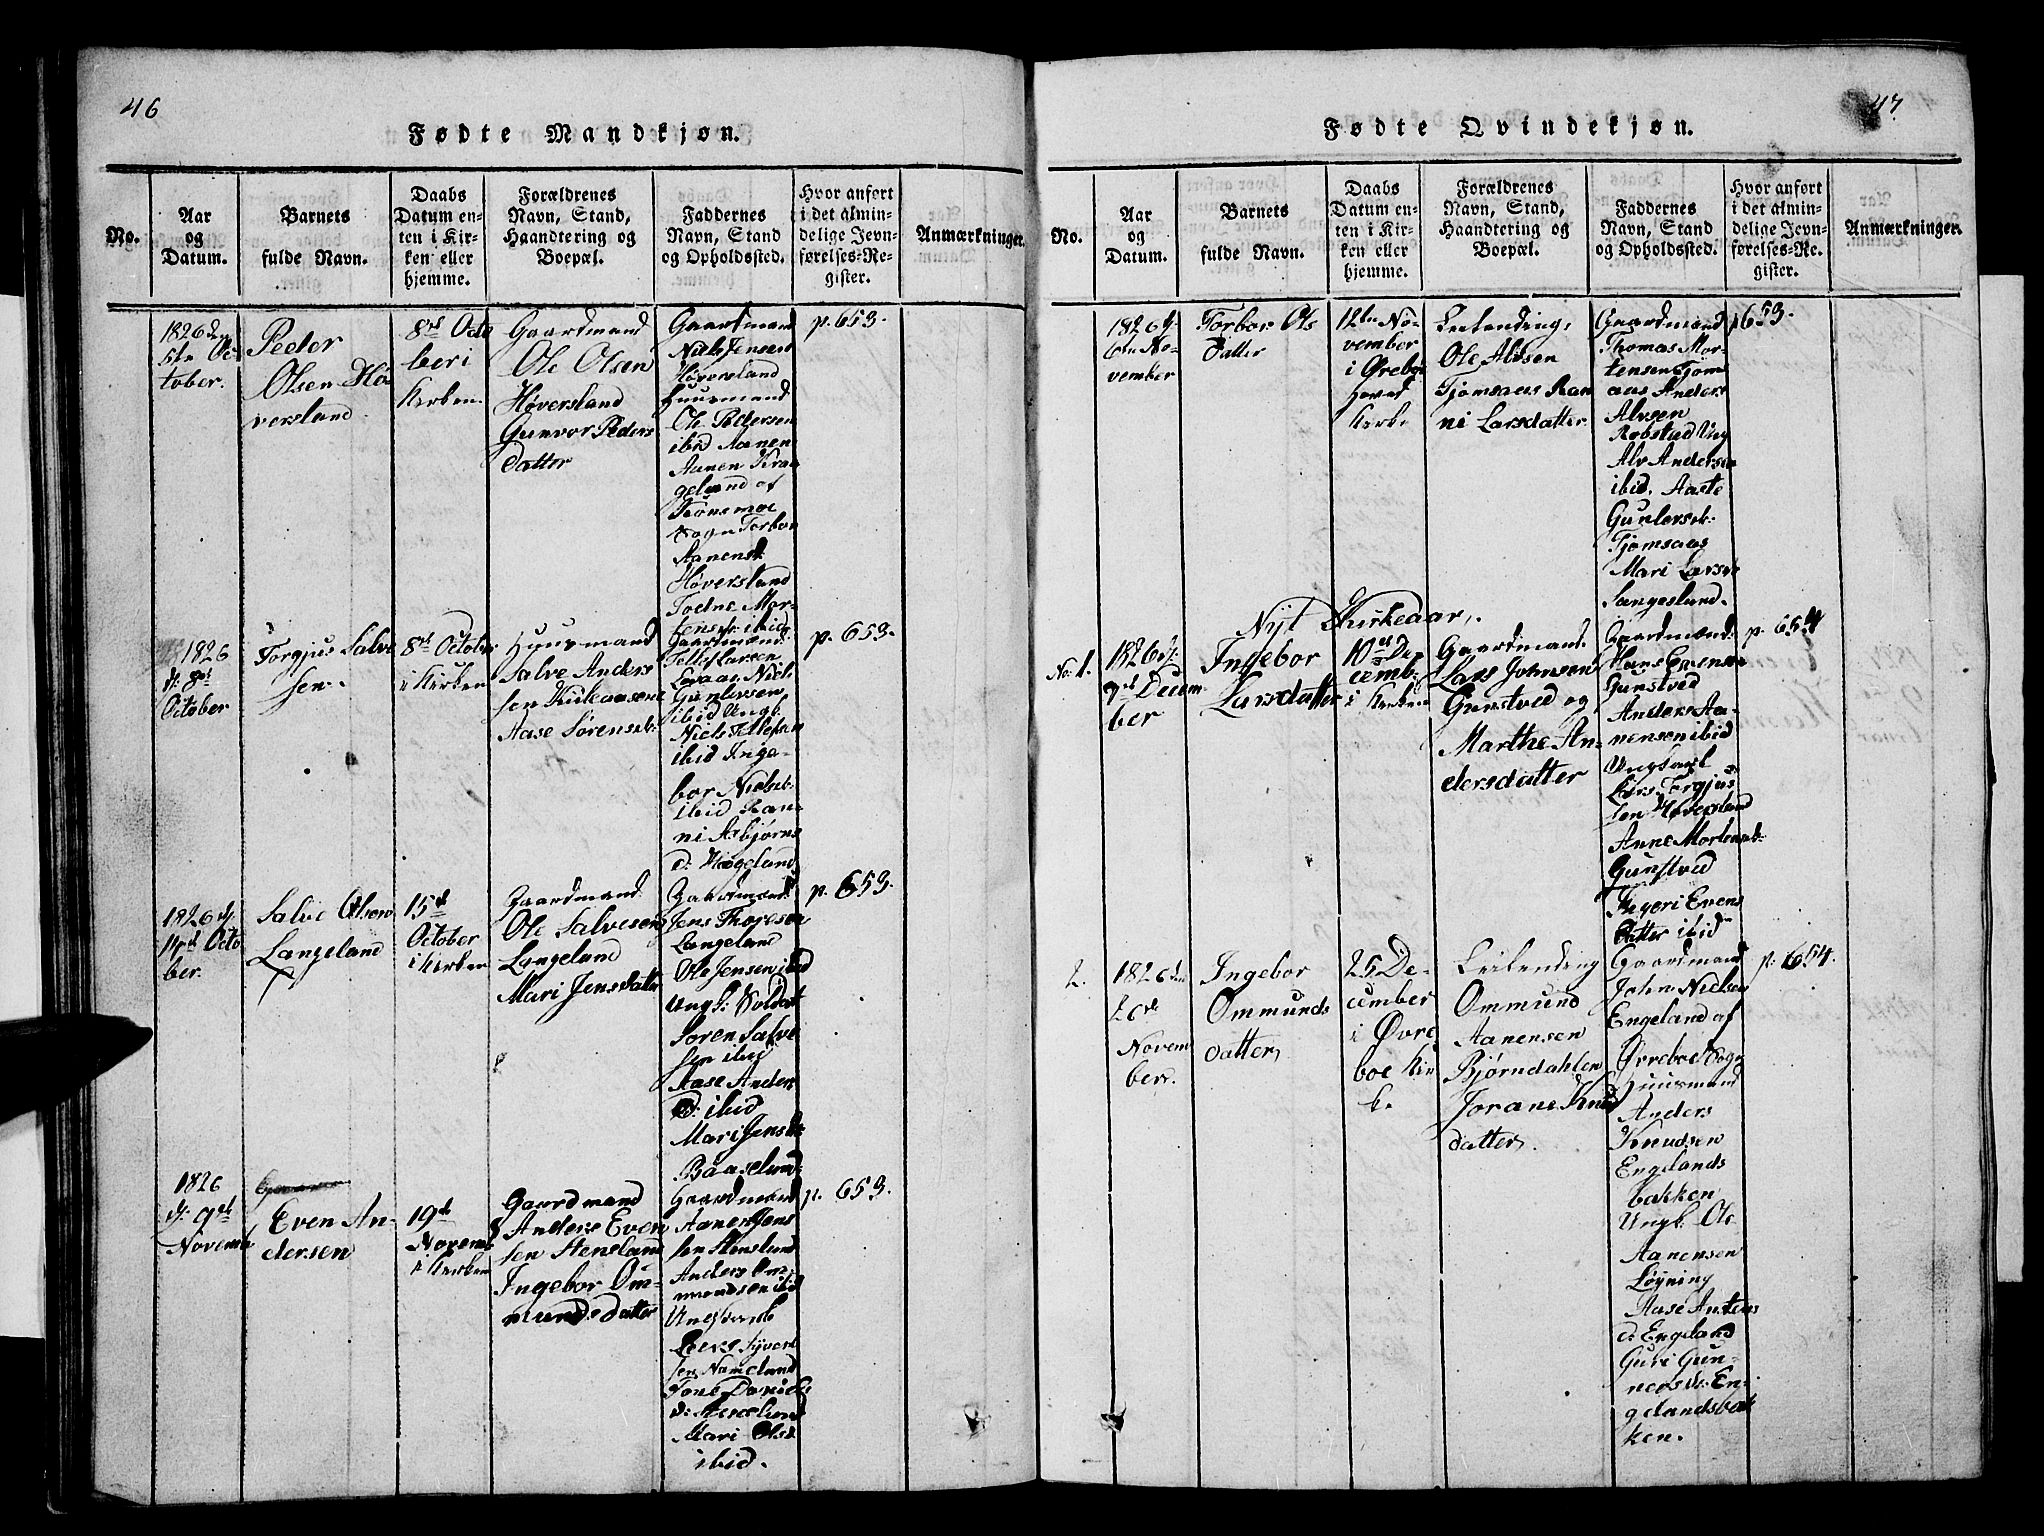 46
Fødte Mandkjøn.
No.
Aar
og
Datum.
Barnets
fulde Navn.
Daabs
Datum en-
ten i Kir-
ken eller
hjemme.
Forældrenes
Navn, Stand,
Haandtering og
Boepæl.
Faddernes
Navn, Stand
og Opholdssted.
Hvor anført
i det almin-
delige Jevn-
førelses-Re-
gister.
Anmærkninger.
1826 den
5te Oc
tober.
Peder
Olsen Hø
versland
8de Octo
ber i
Kirken
Gaardmand
Ole Olsen
Høversland
Gunvor Peders
datter
Gaardmand
Niels Jensen
Høversland
Huusmand
Ole Pedersen
ibid Aanen
Aanen Kra
geland af
Finsmoe
Sogn Torbor
Aanensd.
Høversland
Todne Mor-
tensd. ibid
p. 653.
1826
d. 8de
October
Torgjus Salve
sen.
8de October
i Kirken
Huusmand
Salve Anders
sen Kirkeaasene
Aase Sørensd.
Gaardmænd
Tellef Larsen
Lovaas Niels
Gunlersen
ibid Ungk.
Niels Tellefsen
ibid Inge-
bor Nielsd.
ibid Ran-
ni Asbjørns
d. Høgeland
p. 653.
1826 d.
14de Octo
ber.
Salve Olsen
Langeland
15de
October
i Kirken
Gaardmand
Ole Salvesen
Langeland
Mari Jensdatt
Gaardmænd
Jens Thoresen
Langeland
Ole Jensen ibid
Ungk. Soldat
Søren Salve
sen ibid
Aase Anders
d. ibid
Mari Jensd.
Baaseland
p. 653.
1826
d. 9de
Novemb
Even An-
dersen
19de
Novemb
i Kirken
Gaardmand
Anders Even
sen Stensland
Ingebor Om-
mundsdatter
Gaardmænd
Aanen Jens
sen Stensland
Anders Om-
mundsen ibid
Ungkarl
Peers Syvert
sen Nameland
Tone Daniels
d. Stensland
Mari Olsd
ibid.
p. 653.
47.
Fødte Qvindekjøn.
No.
Aar
og
Datum.
Barnets
fulde Navn.
Daabs
Datum en-
ten i Kir-
ken eller
hjemme.
Forældrenes
Navn, Stand,
Haandtering og
Boepæl.
Faddernes
Navn, Stand
og Opholdssted.
Hvor anført
i det almin-
delige Jevn-
førelses-Re-
gister.
Anmærkninger.
1826 d.
6te No-
vember
Torbor Ols
datter
12te No-
vember
i Øreboe
Hoved
Kirke
Leilending
Ole Alvsen
Tjomsaas Ran
ni Larsdatter
Gaardmænd
Thomas Mor-
tensen Tjom
aas Anders
Alvsen
Robstad Ung
Alv Andersen
ibid. Aaste
Gunlersd.
Tjomsaas
Mari Larsd
Langeland.
p 653.
Nyt Kirkeaar.
No. 1.
1826 d.
9de Decem-
ber
Ingebor
Larsdatter
10de De
cemb.
i Kirken
Gaardmand
Lars Johnsen
Gunstved og
Marthe An-
dersdatter
Gaardmænd
Hans Evensen
Gunstved
Anders Aa-
nensen ibid
Ungkarl
Lars Torgjus
sen Høversland
Anne Mortensd.
Gunstved
Sigeri Evens
datter ibid
p. 654
2.
1826 den
26de
Novem
ber.
Ingebor
Ommunds
datter
25 De-
cember
i Øvre
boe Kir
ke
Leilending
Ommund
Aanensen
Bjørndahlen
Jorane Knud
datter
Gaardmand
John Nielsen
Engeland af
Øvreboe Sogn
Huusmand
Anders
Knudsen
Engelands
bakken
Ungk. Ole
Aanensen
Løyning
Aase Anstens
d. Engeland
Guri Gun-
neosds. En-
gelandsbak
ken.
p. 654.